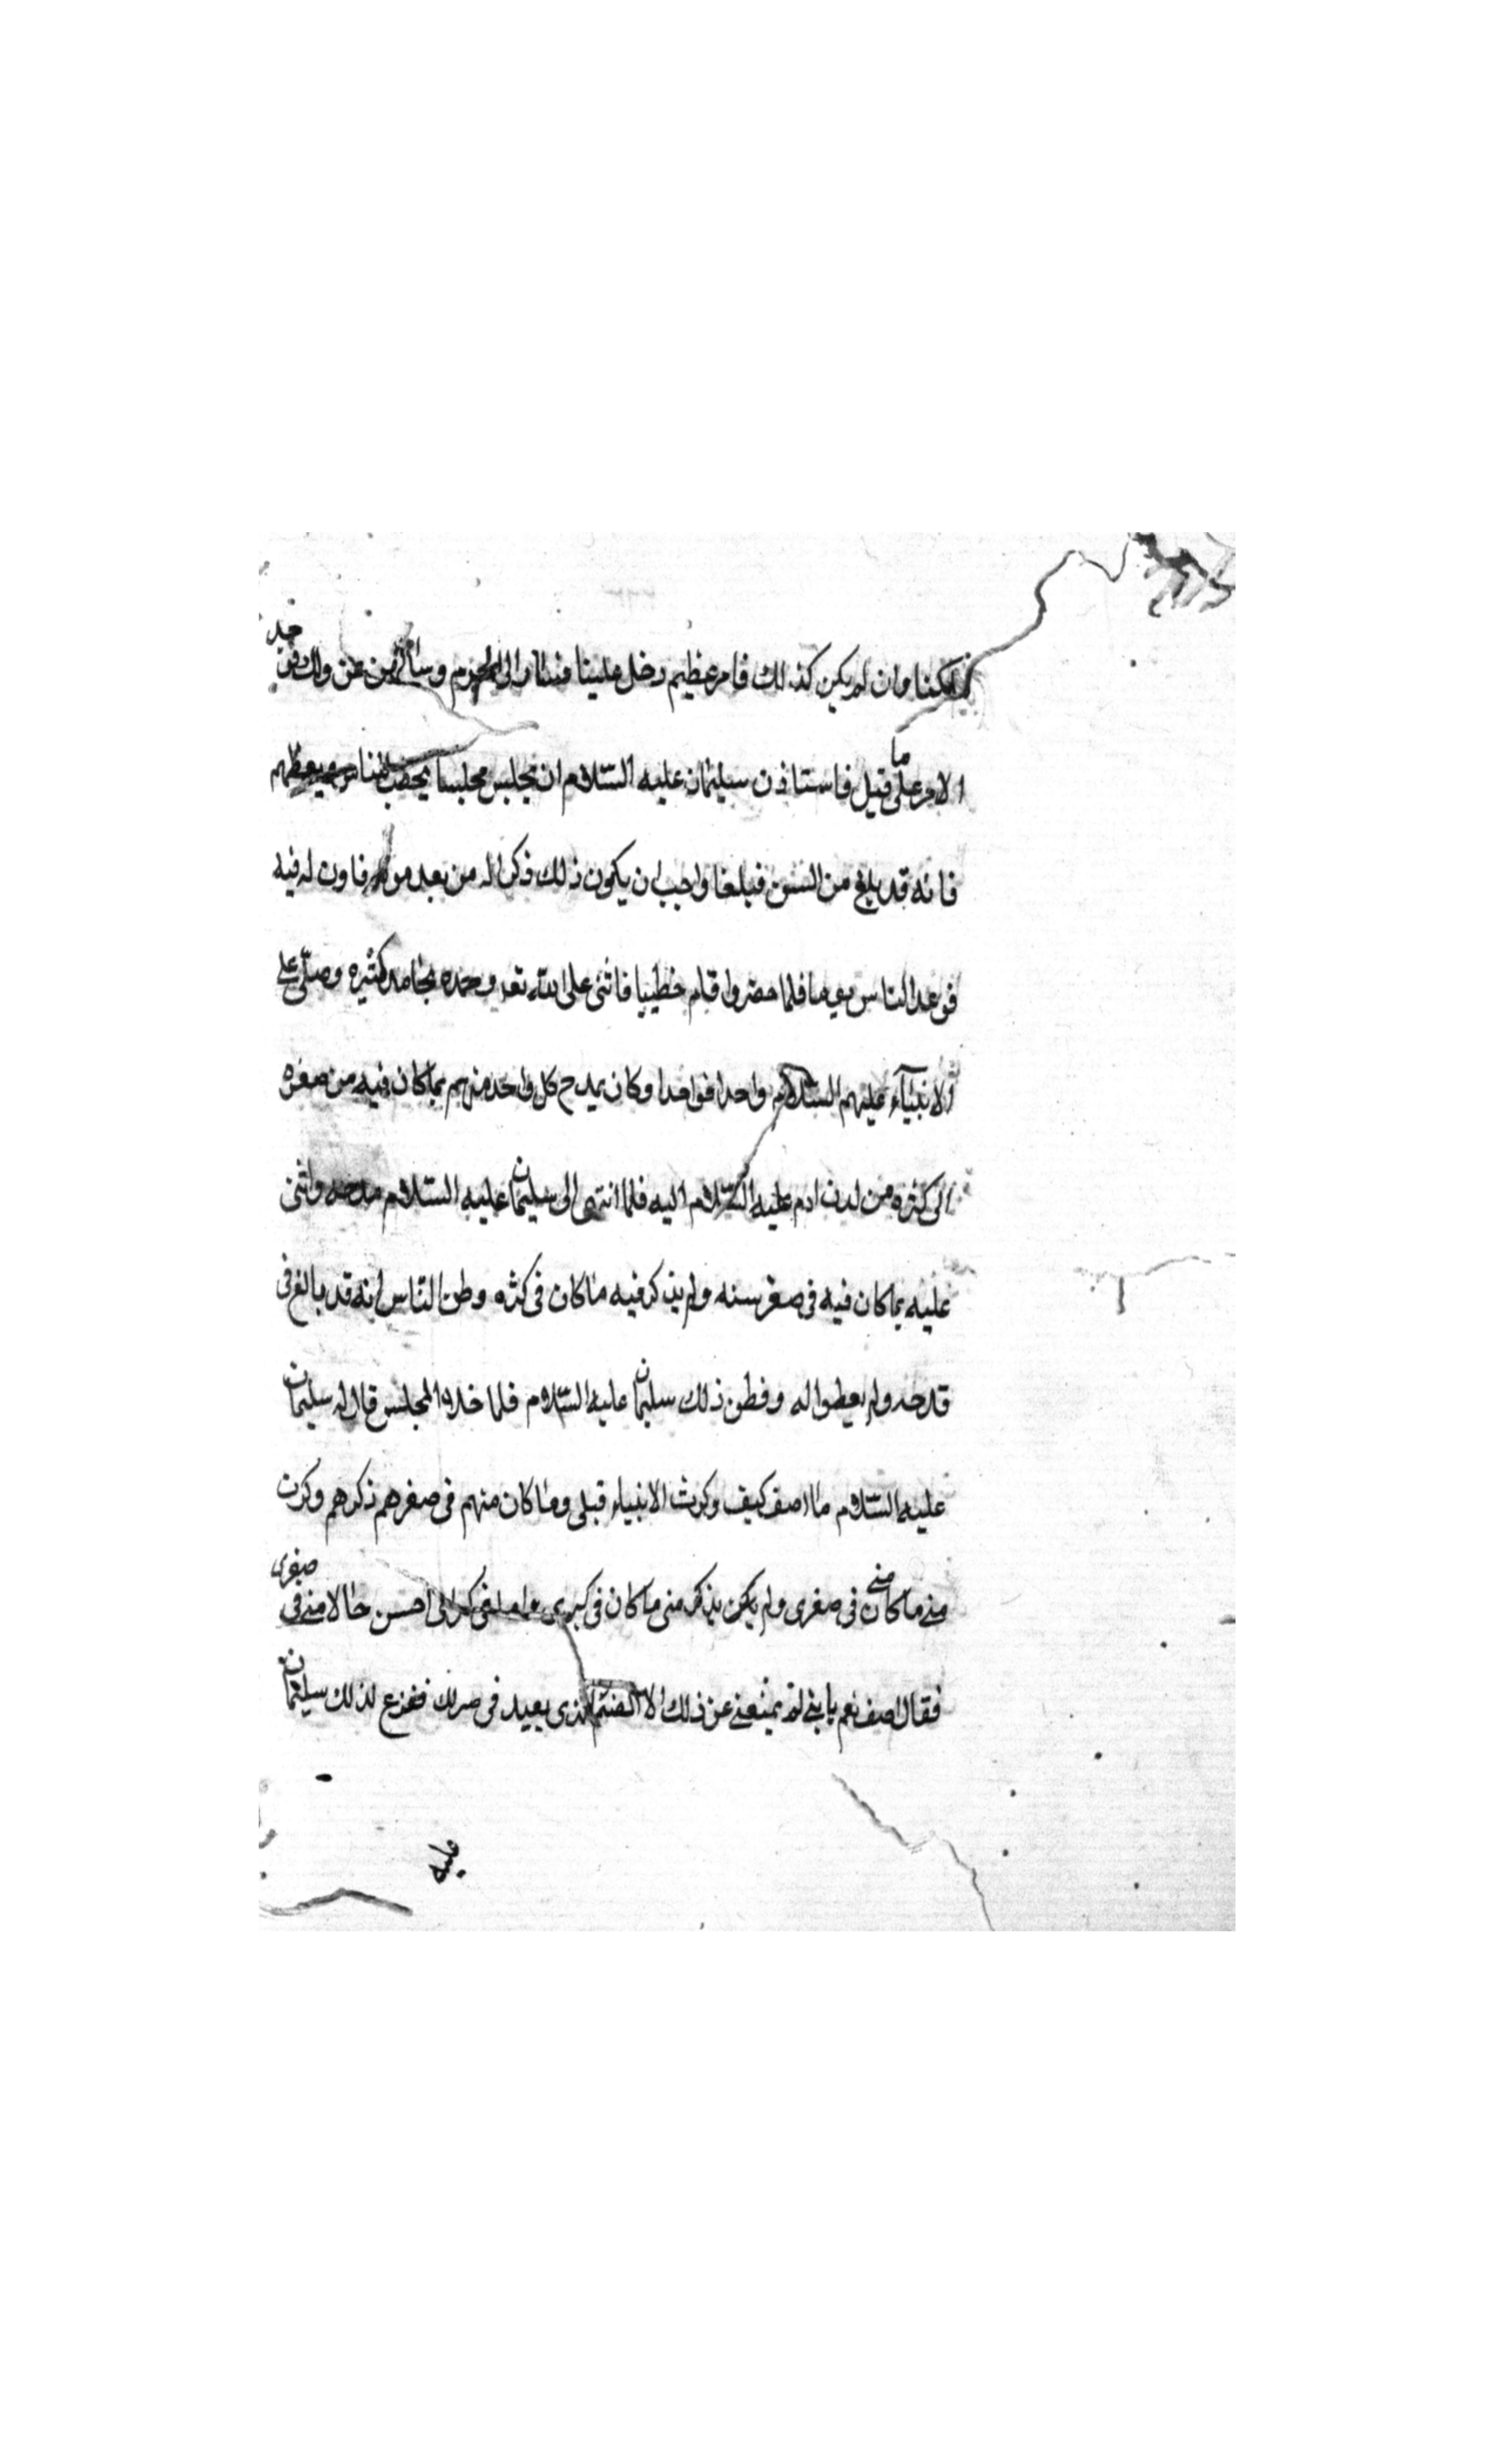 وان لم يكن كذلك فامر عظيم دخل علينا فبادر الى الحرم وسألهن عن ذلك فوجد
الامر على ما قيل فاستاذن سليمان عليه السلام ان يجلس مجلسا يحضر الناس ويعظهم
فانه قد بلغ من السن مبلغا واحب ان يكون ذلك ذكرا له من بعد موته فاذن له فيه
فوعد الناس يوما فلما حضروا قام خطيبا فاثنى على الله تعه وحمده بمحامد كثيره وصلى على
الانبيآء عليهم السّلام واحدا فواحدا وكان يمدح كل واحد منهم بما كان فيه من صغره
الى كبره من لدن ادم عليه السّلام اليه فلما انتهى الى سليمان عليه السّلام مدحه واثنى
عليه بما كان فيه فى صغر سنه ولم يذكر فيه ما كان فى كبره وظن النّاس انه قد بالغ فى
قدحه ولم يفطنوا له وفطن ذلك سليمان عليه السّلام فلما خلا المجلس قال له سليمان
عليه السّلام ما اصف كيف ذكرت الانبياء قبلى وما كان منهم فى صغرهم ذكرهم وذكرت
منى ما كان منى فى صغرى ولم يكن يذكر منى ما كان فى كبرى احسن حالا منى فى صغرى
فقال اصف نعم يا بنى لم يمنعنى عن ذلك الا الصنم الذى يعبد فى منزلك ففزع لذلك سليمان
عليه